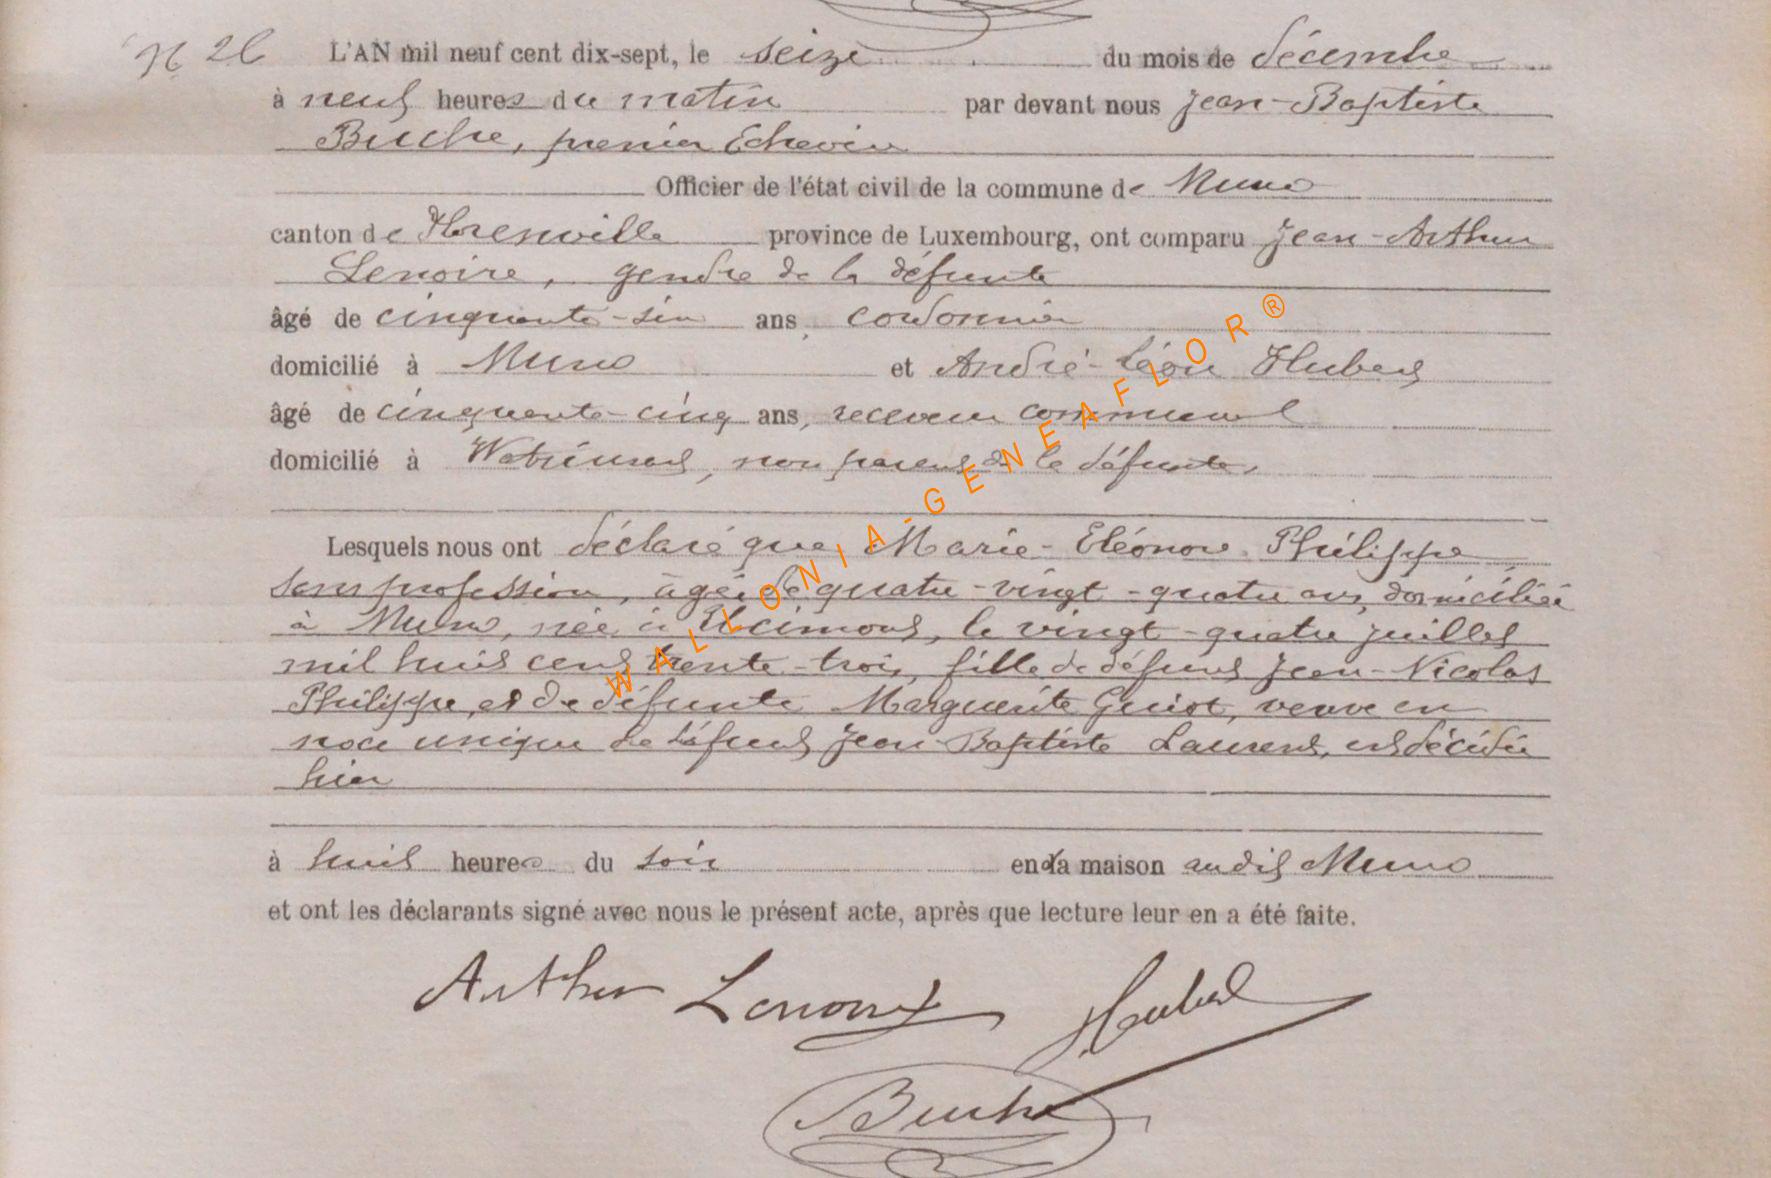 N 26
L'AN mil neuf cent dix-sept, le seize du mois de décembre
à neuf heures du matin par devant nous Jean-Baptiste
Buche, premier Echevin
Officier de l'état civil de la commune de Muno
canton de Florenville province de Luxembourg, ont comparu Jean-Arthur
Lenoire, gendre de la défunte
âgé de cinquante-six ans, cordonnier
domicilié à Muno et André-Léon Hubert
âgé de cinquante-cinq ans, receveur communal
domicilié à Watrinsart, non parent de la défunte,
Lesquels nous ont déclaré que Marie-Eléonore Philippe,
sans profession, âgée de quatre-vingt-quatre ans, domiciliée
à Muno, née à le vingt-quatre juillet
mil huit cent trente-trois, fille de défunt Jean-Nicolas
Philippe, et de défunte Marguerite Guiot, veuve en
noce unique de défunt Jean Baptiste Laurent, est décédée
hier
à huit heures du soir en la maison audit Muno
et ont les déclarants signé avec nous le présent acte, après que lecture leur en a été faite.
Arthur Hubert
Buche
WALLONIA-GENEAFLOR®